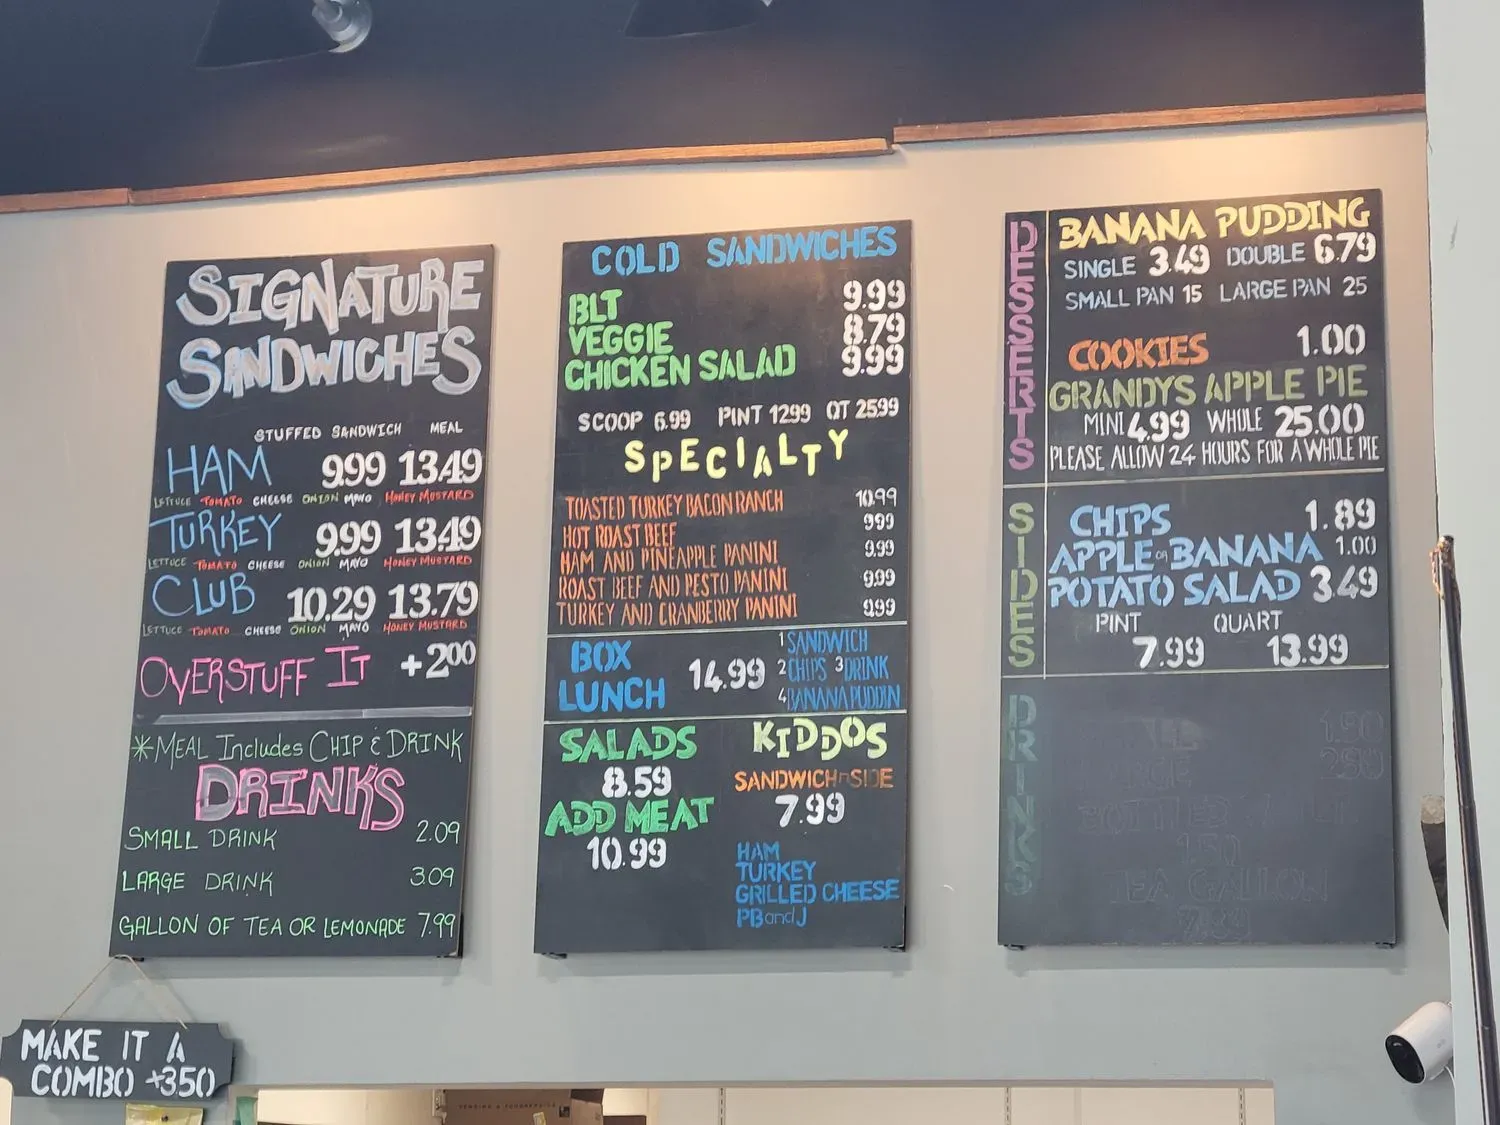 SIGNATURE
SANDWICHES
STUFFED SANDWICH MEAL
HAM 9.99 13.49
LETTUCE TOMATO CHEESE ONION MAYO HONEY MUSTARD
TURKEY 9.99 13.49
LETTUCE TOMATO CHEESE ONION MAYO HONEY MUSTARD
CLUB 10.29 13.79
LETTUCE TOMATO CHEESE ONION MAYO HONEY MUSTARD
OVERSTUFF IT +2.00
*MEAL Includes CHIP & DRINK
DRINKS
SMALL DRINK 2.09
LARGE DRINK 3.09
GALLON OF TEA OR LEMONADE 7.99
MAKE IT A
COMBO +3.50
COLD SANDWICHES
BLT 9.99
VEGGIE 8.79
CHICKEN SALAD 9.99
SCOOP 6.99 PINT 12.99 QT 25.99
SPECIALTY
TOASTED TURKEY BACON RANCH 10.99
HOT ROAST BEEF 9.99
HAM AND PINEAPPLE PANINI 9.99
ROAST BEEF AND PESTO PANINI 9.99
TURKEY AND CRANBERRY PANINI 9.99
BOX
LUNCH
14.99
1 SANDWICH
2 CHIPS 3 DRINK
4 BANANA PUDDIN
SALADS
8.59
ADD MEAT
10.99
KIDDOS
SANDWICH n SIDE
7.99
HAM
TURKEY
GRILLED CHEESE
PB and J
DESSERTS
BANANA PUDDING
SINGLE 3.49 DOUBLE 6.79
SMALL PAN 15 LARGE PAN 25
COOKIES 1.00
GRANDYS APPLE PIE
MINI 4.99 WHOLE 25.00
PLEASE ALLOW 24 HOURS FOR A WHOLE PIE
SIDES
CHIPS 1.89
APPLE or BANANA 1.00
POTATO SALAD 3.49
PINT QUART
7.99 13.99
DRINKS
TEA GALLON